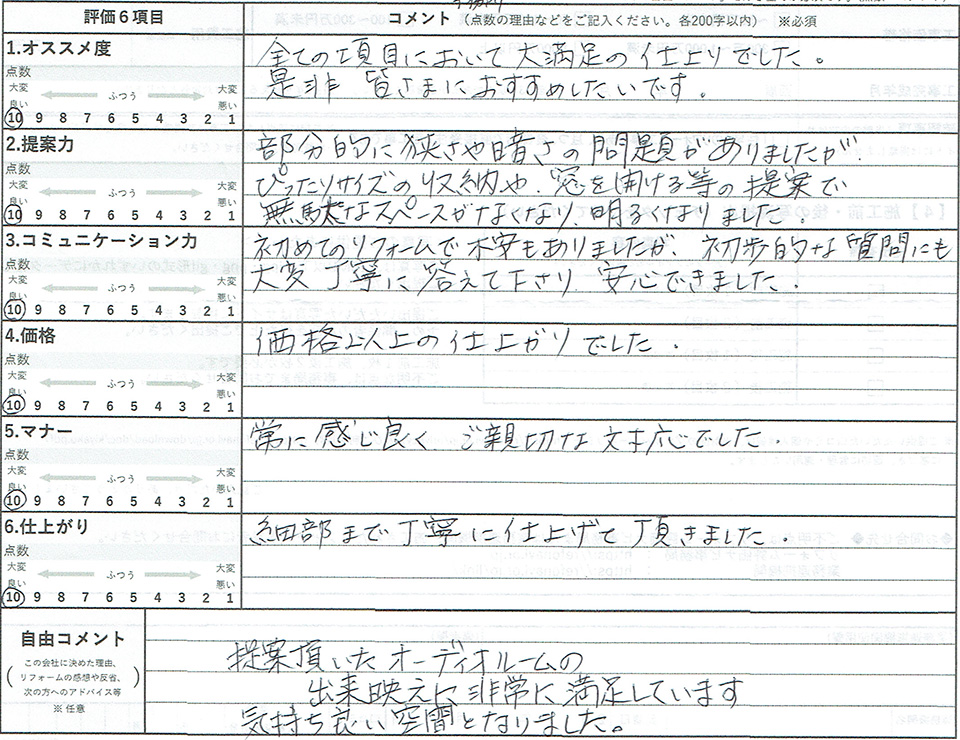 評価６項目
コメント （点数の理由などをご記入ください。各200字以内） ※必須
1.オススメ度
点数
大変 良い ふつう 大変 悪い
10 9 8 7 6 5 4 3 2 1
全ての項目において大満足の仕上りでした。
是非 皆さまにおすすめしたいです。
2.提案力
点数
大変 良い ふつう 大変 悪い
10 9 8 7 6 5 4 3 2 1
部分的に狭さや暗さの問題がありましたが、
ぴったりサイズの収納や、窓を開ける等の提案で
無駄なスペースがなくなり、明るくなりました。
3.コミュニケーション力
点数
大変 良い ふつう 大変 悪い
10 9 8 7 6 5 4 3 2 1
初めてのリフォームで不安もありましたが、初歩的な質問にも
大変丁寧に答えて下さり、安心できました。
4.価格
点数
大変 良い ふつう 大変 悪い
10 9 8 7 6 5 4 3 2 1
価格以上の仕上がりでした。
5.マナー
点数
大変 良い ふつう 大変 悪い
10 9 8 7 6 5 4 3 2 1
常に感じ良く ご親切な対応でした。
6.仕上がり
点数
大変 良い ふつう 大変 悪い
10 9 8 7 6 5 4 3 2 1
細部まで丁寧に仕上げて頂きました。
自由コメント
（この会社に決めた理由、
リフォームの感想や反省、
次の方へのアドバイス等）
※ 任意
提案頂いたオーディオルームの
出来映えに非常に満足しています
気持ち良い空間となりました。